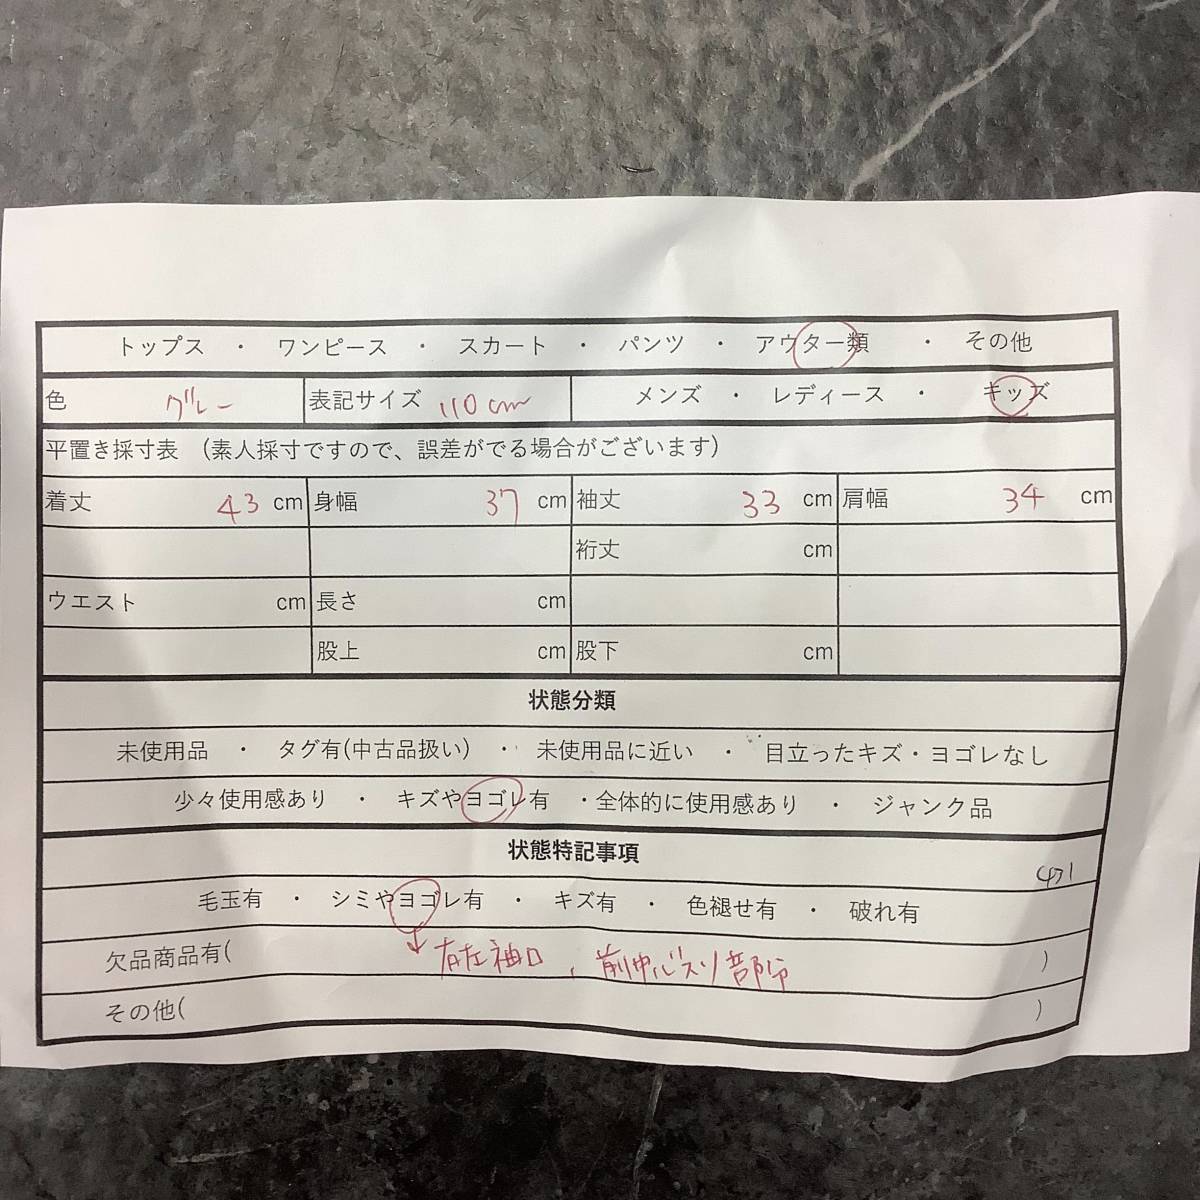 トップス ・ ワンピース ・ スカート ・ パンツ ・ アウター類 ・ その他
色 グレー 表記サイズ 110cm メンズ ・ レディース ・ キッズ
平置き採寸表 (素人採寸ですので、誤差がでる場合がございます)
着丈 43 cm 身幅 37 cm 袖丈 33 cm 肩幅 34 cm
裄丈 cm
ウエスト cm 長さ cm
股上 cm 股下 cm
状態分類
未使用品 ・ タグ有(中古品扱い) ・ 未使用品に近い ・ 目立ったキズ・ヨゴレなし
少々使用感あり ・ キズやヨゴレ有 ・全体的に使用感あり ・ ジャンク品
状態特記事項
毛玉有 ・ シミやヨゴレ有 ・ キズ有 ・ 色褪せ有 ・ 破れ有
欠品商品有( 右左袖口、前中心スソ部分 )
その他( )